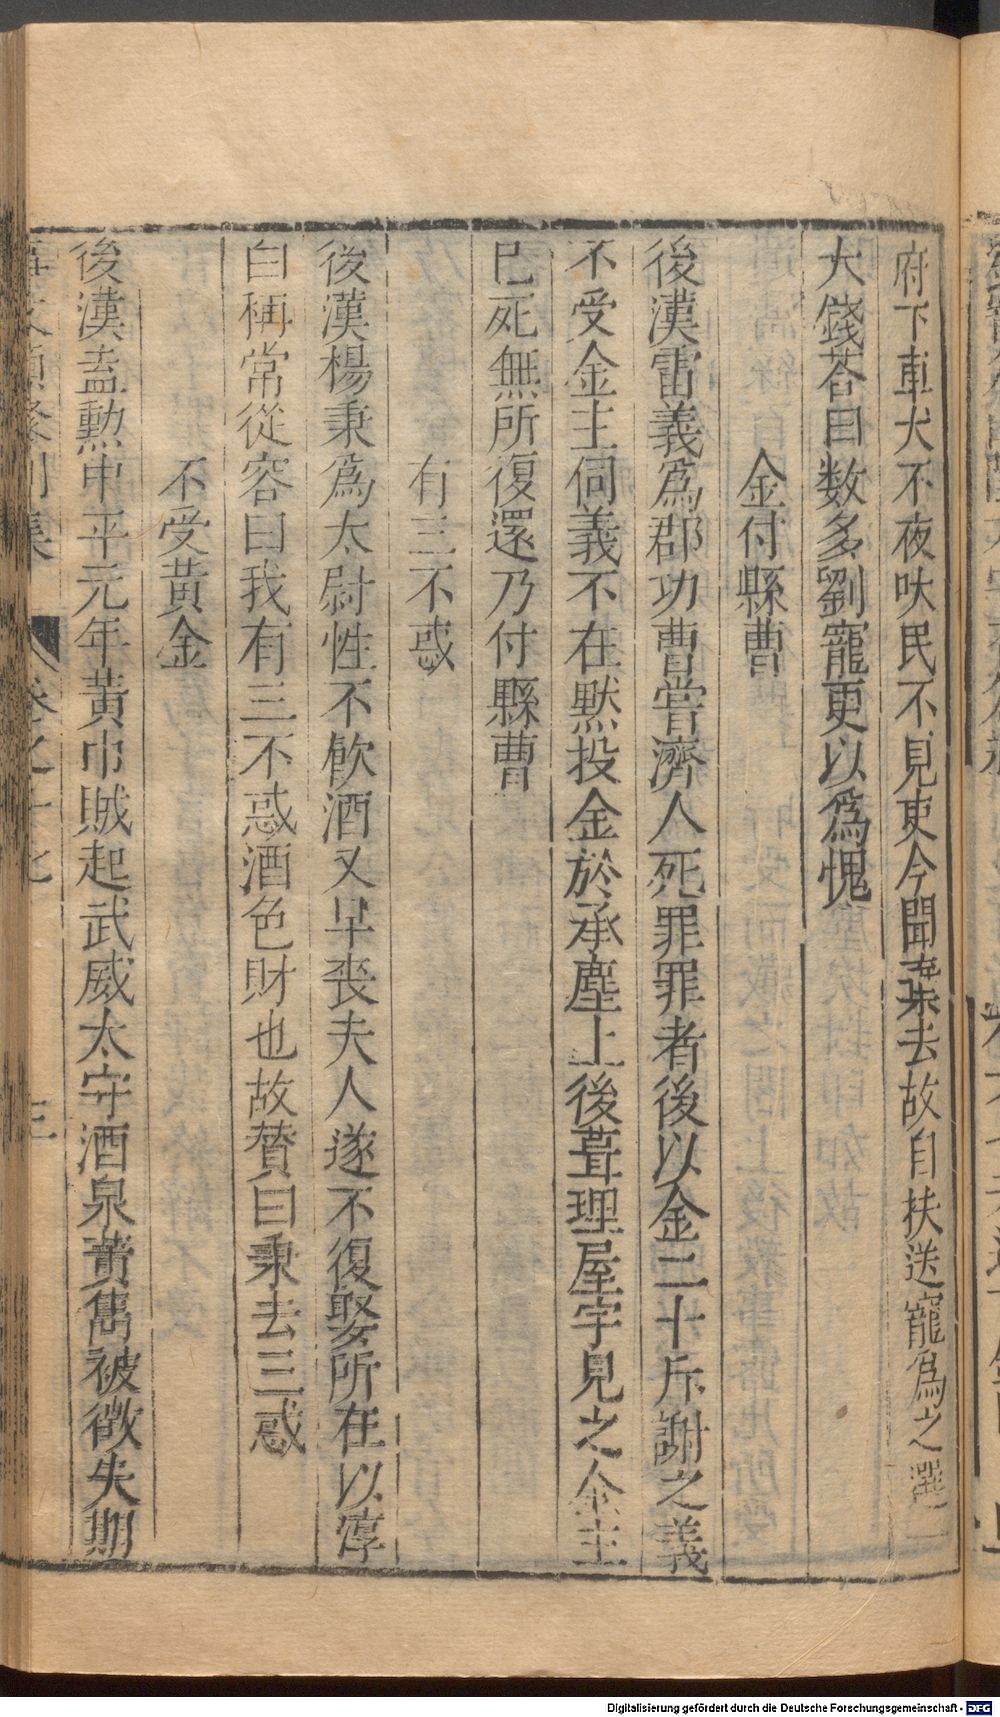 府下車犬不夜吠民不見吏今聞棄去故自扶送寵爲之選一
大錢荅曰数多劉寵更以爲愧
金付縣曹
後漢雷義爲郡功曹嘗濟人死罪罪者後以金二十斥謝之義
不受金主伺義不在默投金於承塵上後葺理屋宇見之金主
已死無所復還乃付縣曹
有三不惑
後漢楊秉爲太尉性不飮酒又早喪夫人遂不復娶所在以淳
白稱常從容曰我有三不惑酒色財也故賛曰秉去三惑
不受黃金
後漢盍勲中平元年黃巾賊起武威太守酒泉黃雋被徵失期
事文類聚別集 卷之十七 三
Digitalisierung gefördert durch die Deutsche Forschungsgemeinschaft - DFG